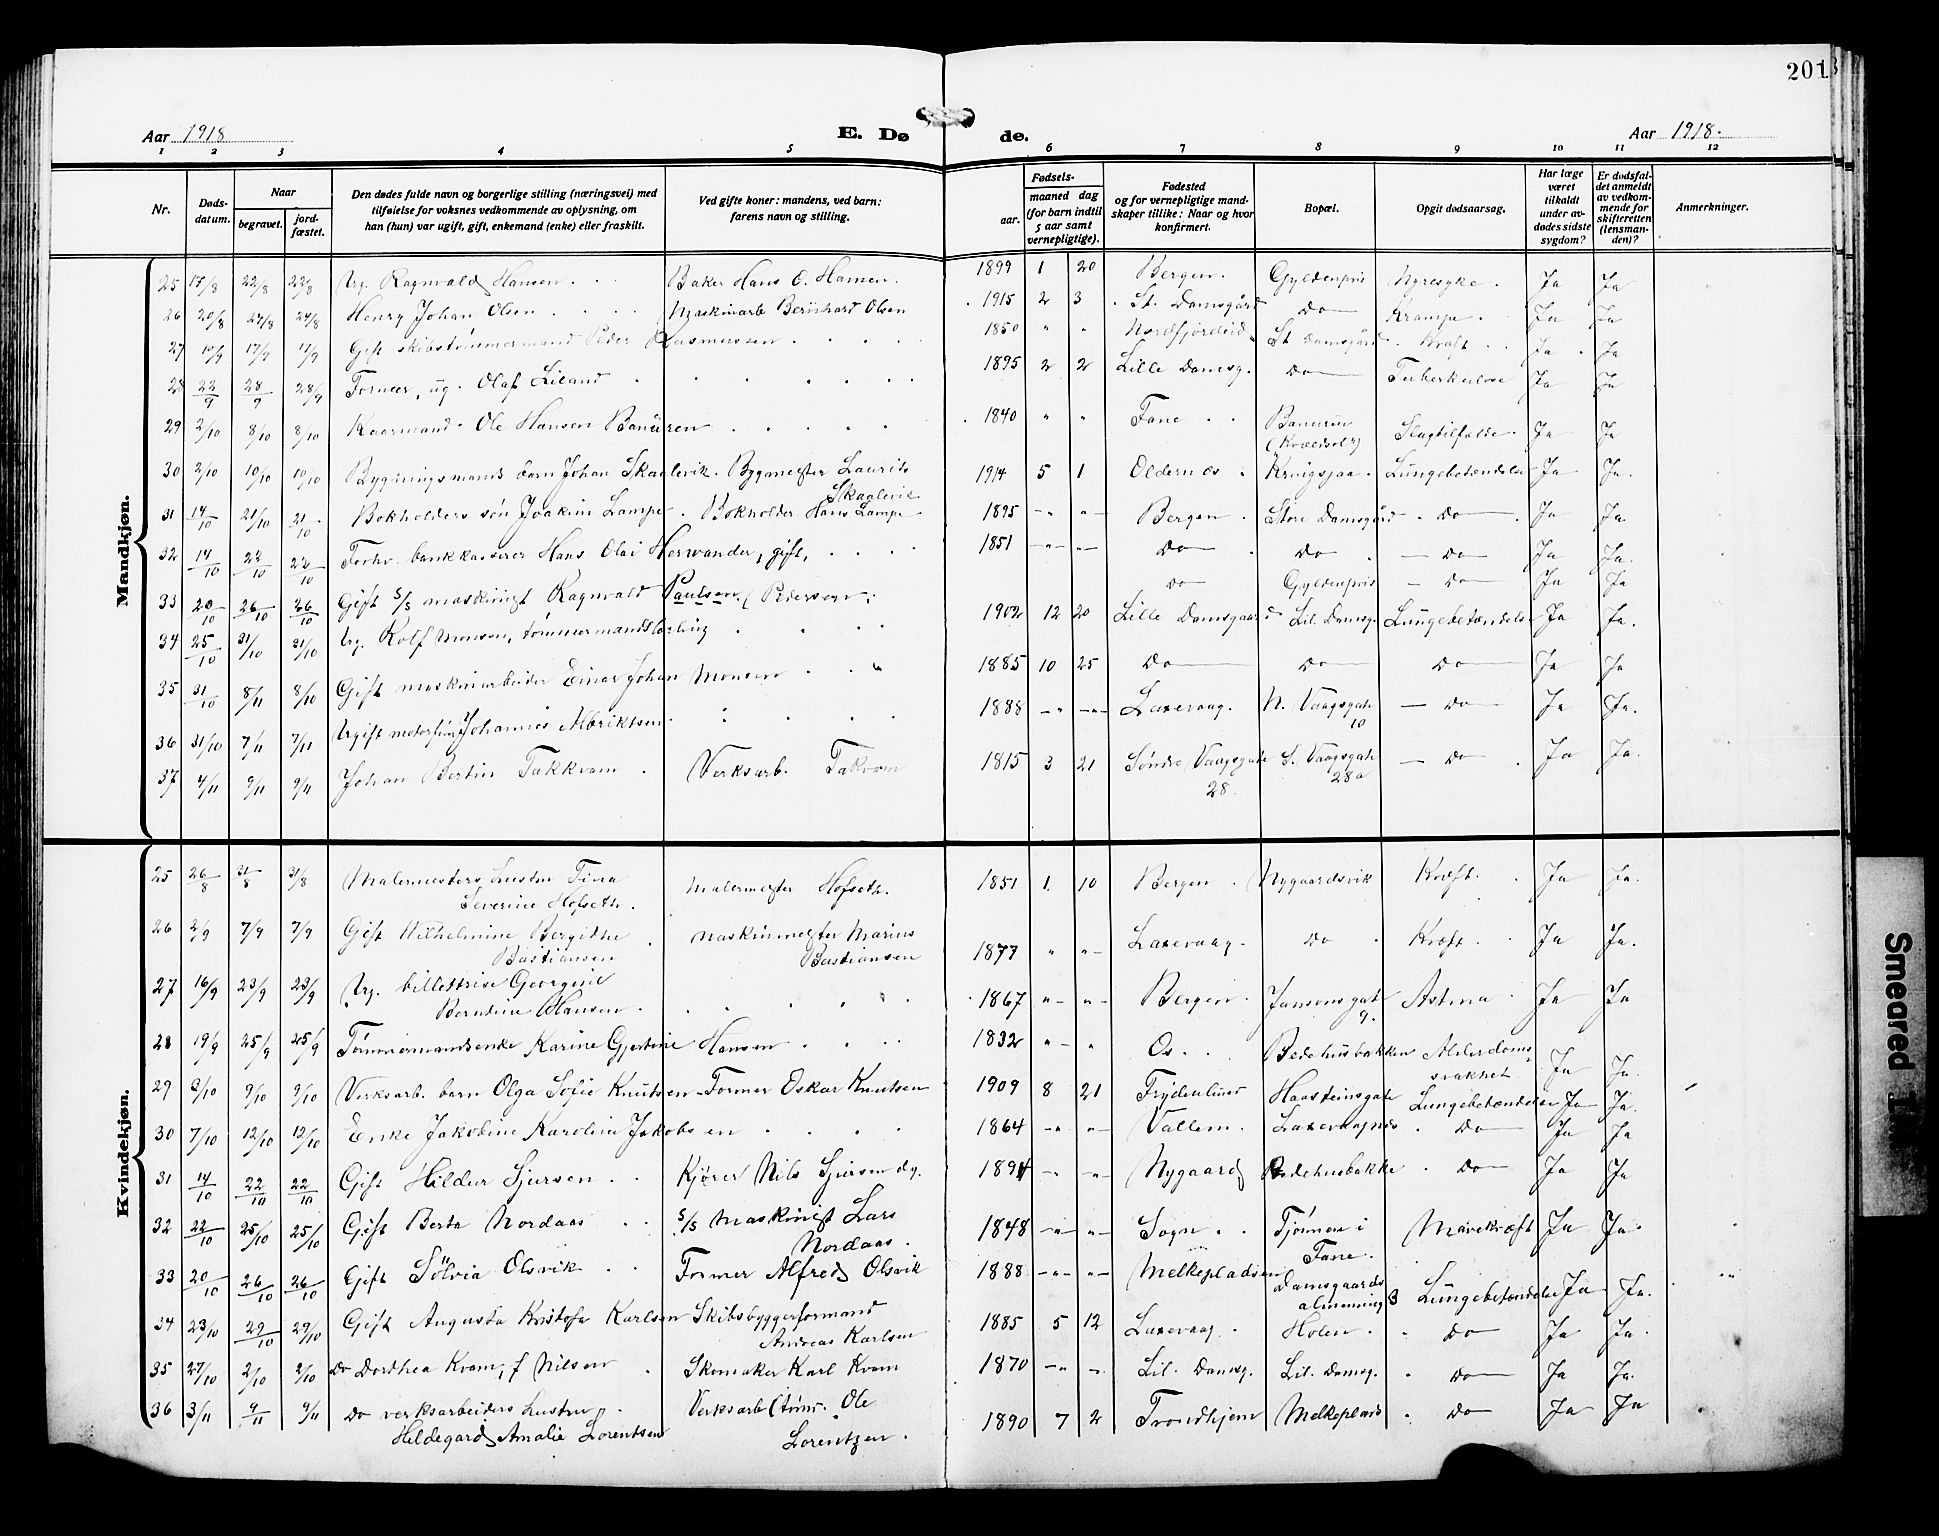 201
Aar 1918
E. Dø de.
Aar 1918.
1 2 3 4 5 6 7 8 9 10 11 12
Nr.
Døds-
datum.
Naar
begravet.
jord-
fæstet.
Den dødes fulde navn og borgerlige stilling (næringsvei) med
tilføielse for voksnes vedkommende av oplysning, om
han (hun) var ugift, gift, enkemand (enke) eller fraskilt.
Ved gifte koner: mandens, ved barn:
farens navn og stilling.
Fødsels-
aar.
maaned dag
(for barn indtil
5 aar samt
vernepligtige).
Fødested
og for vernepligtige mand-
skaper tillike: Naar og hvor
konfirmert.
Bopæl.
Opgit dødsaarsag.
Har læge
været
tilkaldt
under av-
dødes sidste
sygdom?
Er dødsfal-
det anmeldt
av vedkom-
mende for
skifteretten
(lensman-
den)?
Anmerkninger.
Mandkjøn.
25 17/8 22/8 22/8 Ug. Ragnvald Hansen. Baker Hans O. Hansen. 1899 1 20 Bergen. Gyldenpris Nyresyke. Ja Ja
26 20/8 24/8 24/8 Henry Johan Olsen Maskinarb Bernhard Olsen 1915 2 3 St. Damsgård Do Krampe. Ja Ja
27 10/9 17/9 17/9 Gift skibstømmermand Peder Rasmussen 1850 " " Nordfjordeid St Damsgård Kræft Ja Ja
28 22/9 28/9 28/9 Former, ug. Olaf Liland 1895 2 2 Lille Damsg. Do Tuberkulose Ja Ja
29 2/10 8/10 8/10 Kaarmand Ole Hansen Banüren 1840 " " Fane Banuren
Slagtilfælde. Ja Ja
30 2/10 10/10 10/10 Bygningsmands barn Johan Skaalevik. Bygmester Laurits
Skaalevik 1914 5 1 Oldernes Kringsjaa Lungebetændelse Ja Ja.
31 14/10 21/10 21/10 Bokholders søn Joakim Lampe. Bokholder Hans Lampe 1895 " " Bergen Store Damsgård Do Ja Ja.
32 14/10 22/10 22/10 Forhv. bankkasserer Hans Olai Herwander, gift, 1851 " " Do Do Do Ja Ja.
33 20/10 26/10 26/10 Gift S/S maskinist Ragnvald Paulsen. (Pedersen. Do Gyldenpris Do Ja Ja
34 25/10 31/10 31/10 Ug. Rolf Monsen, tømmermandslærling 1902 12 20 Lille Damsgaard Lil. Damsg. Lungebetændelse Ja Ja.
35 31/10 8/11 8/10 Gift maskinarbeider Einar Johan Monsen 1885 10 25 Do Do Do Ja Ja
36 31/10 7/11 7/11 Ugift Johannes Albriktsen 1888 " " Laxevaag. N. Vaagsgate
10 Do Ja Ja.
37 4/11 9/11 9/11 Johan Bertin Takkvam Verksarb. Takvam 1815 3 21 Søndre Vaagsgate
28. S. Vaagsgate
28a Do Ja Ja.
Kvindekjøn.
25 26/8 31/8 31/8 Malermesters hustru Tina
Severine Hofseth. Malermester Hofseth. 1851 1 10 Bergen Nygaardsvik Kræft. Ja Ja.
26 2/9 7/9 7/9 Gift Wilhelmine Bergithe
Bastiansen Maskinmester Marius
Bastiansen 1877 " " Laxevaag. Do Kræft. Ja Ja.
27 16/9 23/9 23/9 Ug. billettrise Georgine
Berntine Hansen. 1867 " " Bergen Jansonsgate
9. Astma Ja Ja
28 19/9 25/9 25/9 Tømmermandsenke Karine Gjertine Hansen 1832 " " Os. Bedehusbakken Alderdoms-
svakhet Ja Ja.
29 2/10 9/10 9/10 Verksarb. barn Olga Sofie Knutsen Former Oskar Knutsen 1909 8 21 Frydenlund Haasteinsgate Lungebetændelse Ja Ja.
30 7/10 12/10 12/10 Enke Jakobine Karoline Jakobsen 1864 " " Vallem. Laxevaagnes Do Ja Ja
31 14/10 22/10 22/10 Gift Hildur Sjursen Kjører Nils Sjursen dy. 1894 " " Nygaard Bedehusbakke Do Ja Ja
32 22/10 25/10 25/10 Gift Berta Nordaas S/S Maskinist Lars
Nordaas. 1848 " " Sogn Tjømen i
Fane. Mavekræft Ja Ja.
33 20/10 26/10 26/10 Gift Sölvia Olsvik Former Alfred Olsvik 1888 " " Melkepladsen Damsgaards
almenning 3 Lungebetændelse Ja Ja.
34 23/10 29/10 29/10 Gift Augusta Kristofa Karlsen Skibsbyggerformand
Andreas Karlsen 1885 5 12 Laxevaag. Holen Do Ja Ja.
35 27/10 2/10 2/10 Do Dorthea Kvam, f Nilsen Skomaker Karl Kvam 1870 " " Lil. Damsg. Lil. Damsg. Do Ja Ja.
36 3/11 9/11 9/11 Do verksarbeiders hustru
Hildegard Amalie Lorentsen Verksarb (tømr. Ole
Lorentzen. 1890 7 2 Trondhjem Melkeplads Do Ja Ja
Smeared